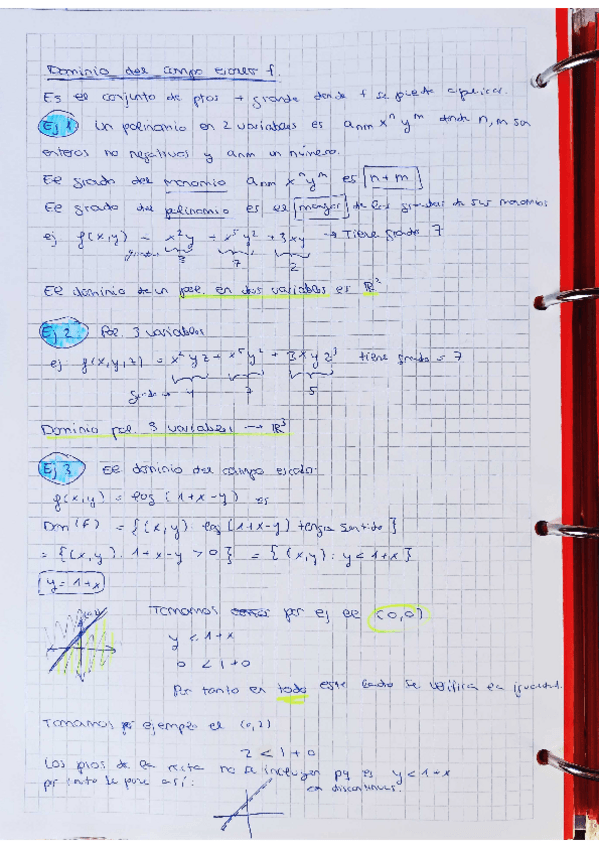 Dominio del campo escalar f.
Es el conjunto de ptos + grande donde f se puede aplicar.
Ej 1 Un polinomio en 2 variables es aₙₘ xⁿyᵐ donde n, m son
enteros no negativos y aₙₘ un número.
El grado del monomio aₙₘ xⁿyᵐ es n+m
El grado del polinomio es el mayor de los grados de sus monomios
ej f(x,y) = x²y + x⁵y² + 3xy → Tiene grado 7
grados 3 7 2
El dominio de un pol. en dos variables es ℝ²
Ej 2 Pol. 3 variables
ej f(x,y,z) = yz + x⁵y² + 3xyz³ tiene grado = 7
Grado → 4 7 5
Dominio pol. 3 variables → ℝ³
Ej 3 El dominio del campo escalar
f(x,y) = log (1+x-y) es
Dm(f) = {(x,y): log (1+x-y) tenga sentido}
= {(x,y): 1+x-y > 0} = {(x,y): y < 1+x}
y = 1+x
Tomamos por ej el (0,0)
y < 1+x
0 < 1+0
Por tanto en todo este lado se verifica la igualdad.
Tomamos ejemplo el (0,2)
2 < 1+0
Los ptos de la recta no se incluyen pq es y < 1+x
por tanto se pone así: en discontinuas.